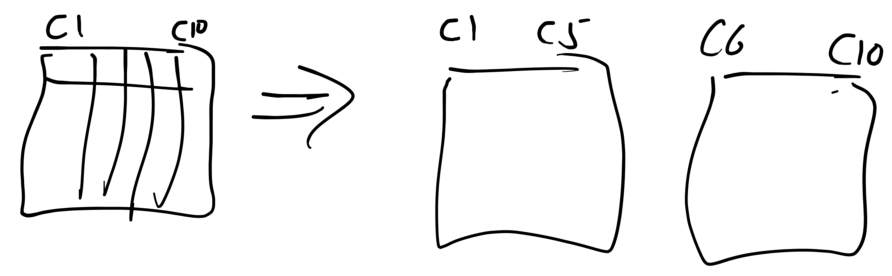 C1 C10 C1 C5 C6 C10